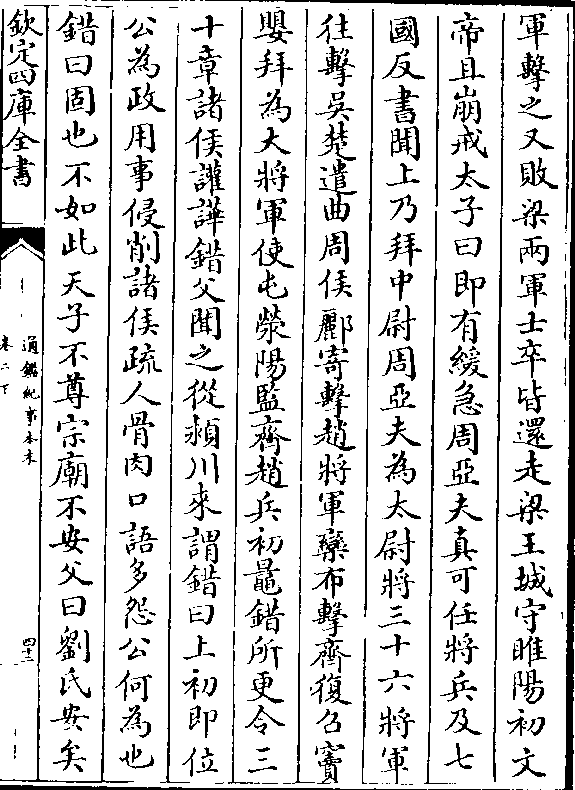 軍擊之又敗梁兩軍士卒皆還走梁王城守睢陽初文
帝且崩戒太子曰即有緩急周亞夫真可任將兵及七
國反書聞上乃拜中尉周亞夫為太尉將三十六將軍
往擊吳楚遣曲周侯酈寄擊趙將軍欒布擊齊復召竇
嬰拜為大將軍使屯滎陽監齊趙兵初鼂錯所更令三
十章諸侯讙譁錯父聞之從潁川來謂錯曰上初即位
公為政用事侵削諸侯疏人骨肉口語多怨公何為也
錯曰固也不如此天子不尊宗廟不安父曰劉氏安矣
欽定四庫全書
通鑑紀事本末
卷二下
四十二